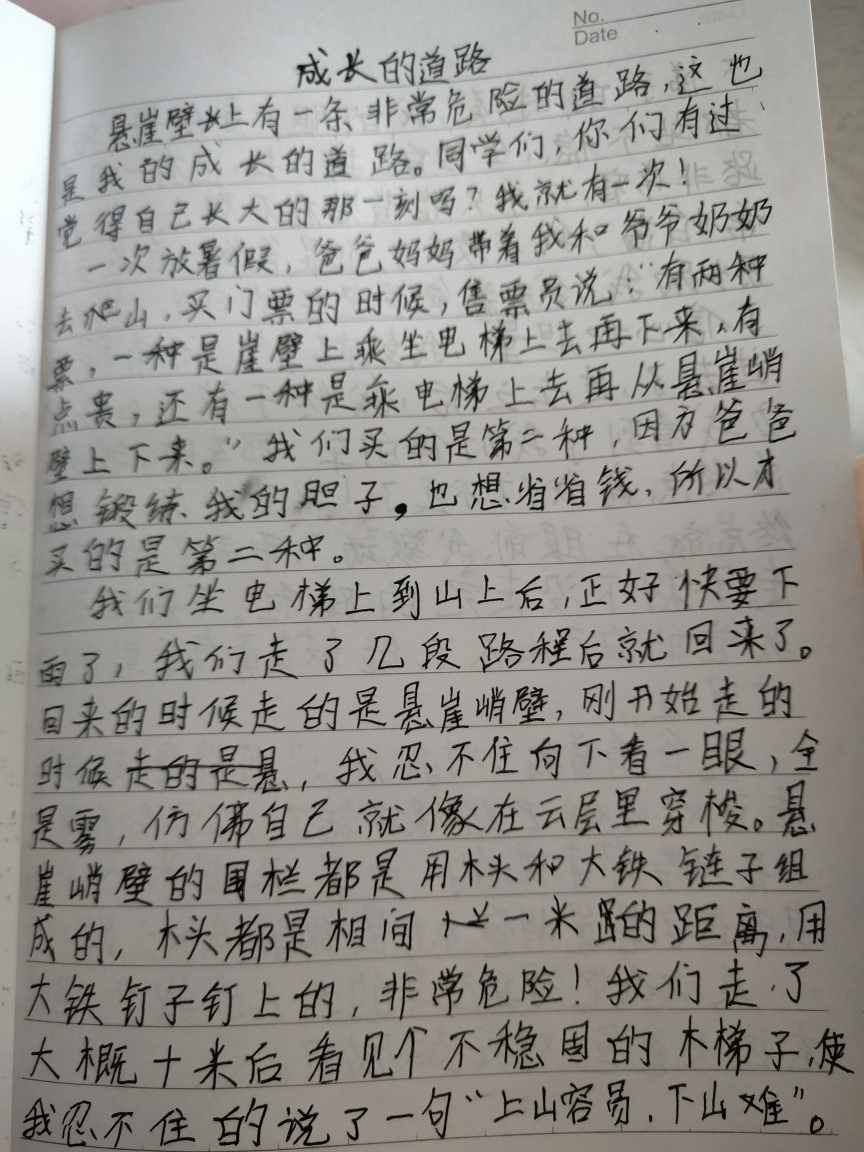 No.
Date
成长的道路
悬崖壁上有一条非常危险的道路,这也
是我的成长的道路。同学们,你们有过
觉得自己长大的那一刻吗?我就有一次!
一次放暑假,爸爸妈妈带着我和爷爷奶奶
去爬山,买门票的时候,售票员说:“有两种
票,一种是崖壁上乘坐电梯上去再下来,有
点贵,还有一种是乘电梯上去再从悬崖峭
壁上下来。”我们买的是第二种,因为爸爸
想锻练我的胆子。也想省省钱,所以才
买的是第二种。
我们坐电梯上到山上后,正好快要下
雨了,我们走了几段路程后就回来了。
回来的时候走的是悬崖峭壁,刚开始走的
时候走的是悬,我忍不住向下看一眼,全
是雾,仿佛自己就像在云层里穿梭。悬
崖峭壁的围栏都是用木头和大铁链子组
成的,木头都是相间一米的距离,用
大铁钉子钉上的,非常危险!我们走了
大概十米后看见个不稳固的木梯子,使
我忍不住的说了一句“上山容易,下山难”。